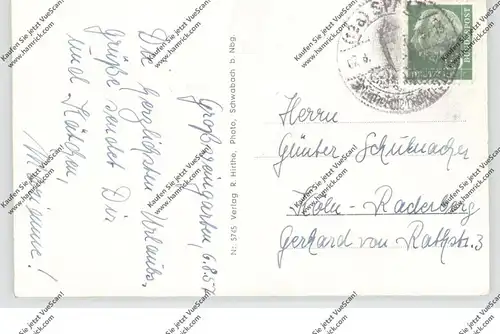 Großweingarten, 6.8.57
Die herzlichsten Urlaubs-
grüße sendet Dir
und Kätchen,
Marianne!
Nr. 5745 Verlag R. Hirthe, Photo, Schwabach b. Nbg.
DEUTSCHE
BUNDESPOST
Herrn
Günter Schuhmacher
Köln-Raderberg
Gerhard von Rathstr. 3
Kaufen Sie jetzt VueScan!
www.hamrick.com